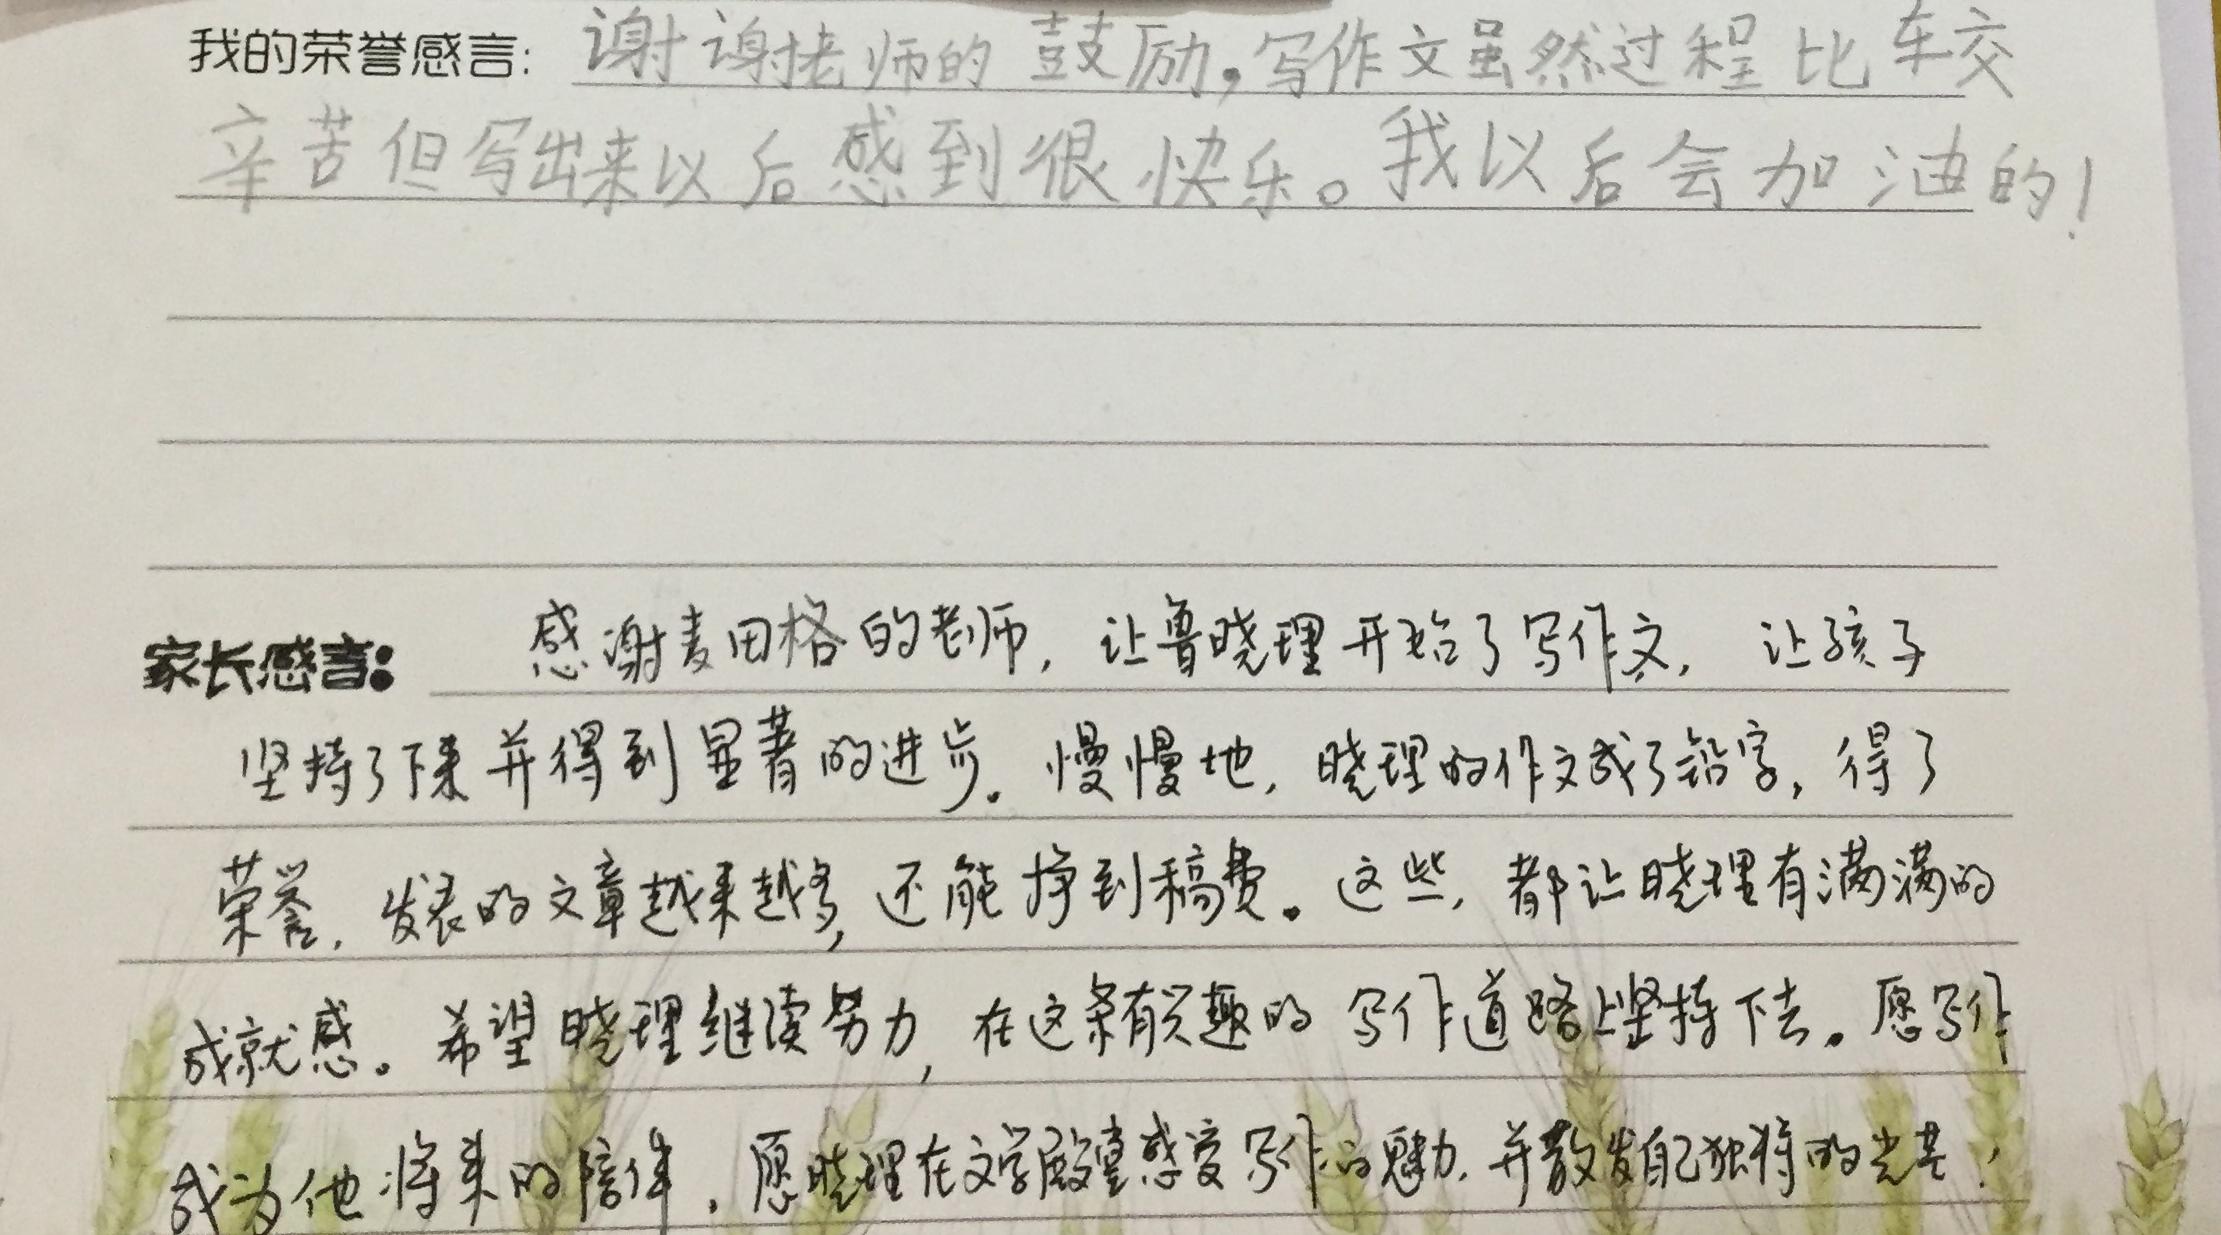 我的荣誉感言：谢谢老师的鼓励，写作文虽然过程比较
辛苦但写出来以后感到很快乐。我以后会加油的！
家长感言：感谢麦田格的老师，让鲁晓理开始了写作文，让孩子
坚持了下来并得到显著的进步。慢慢地，晓理的作文成了铅字，得了
荣誉，发表的文章越来越多，还能挣到稿费。这些，都让晓理有满满的
成就感。希望晓理继续努力，在这条有兴趣的写作道路上坚持下去。愿写作
成为他将来的陪伴，愿晓理在文学殿堂感受写作的魅力，并散发自己独特的光芒！